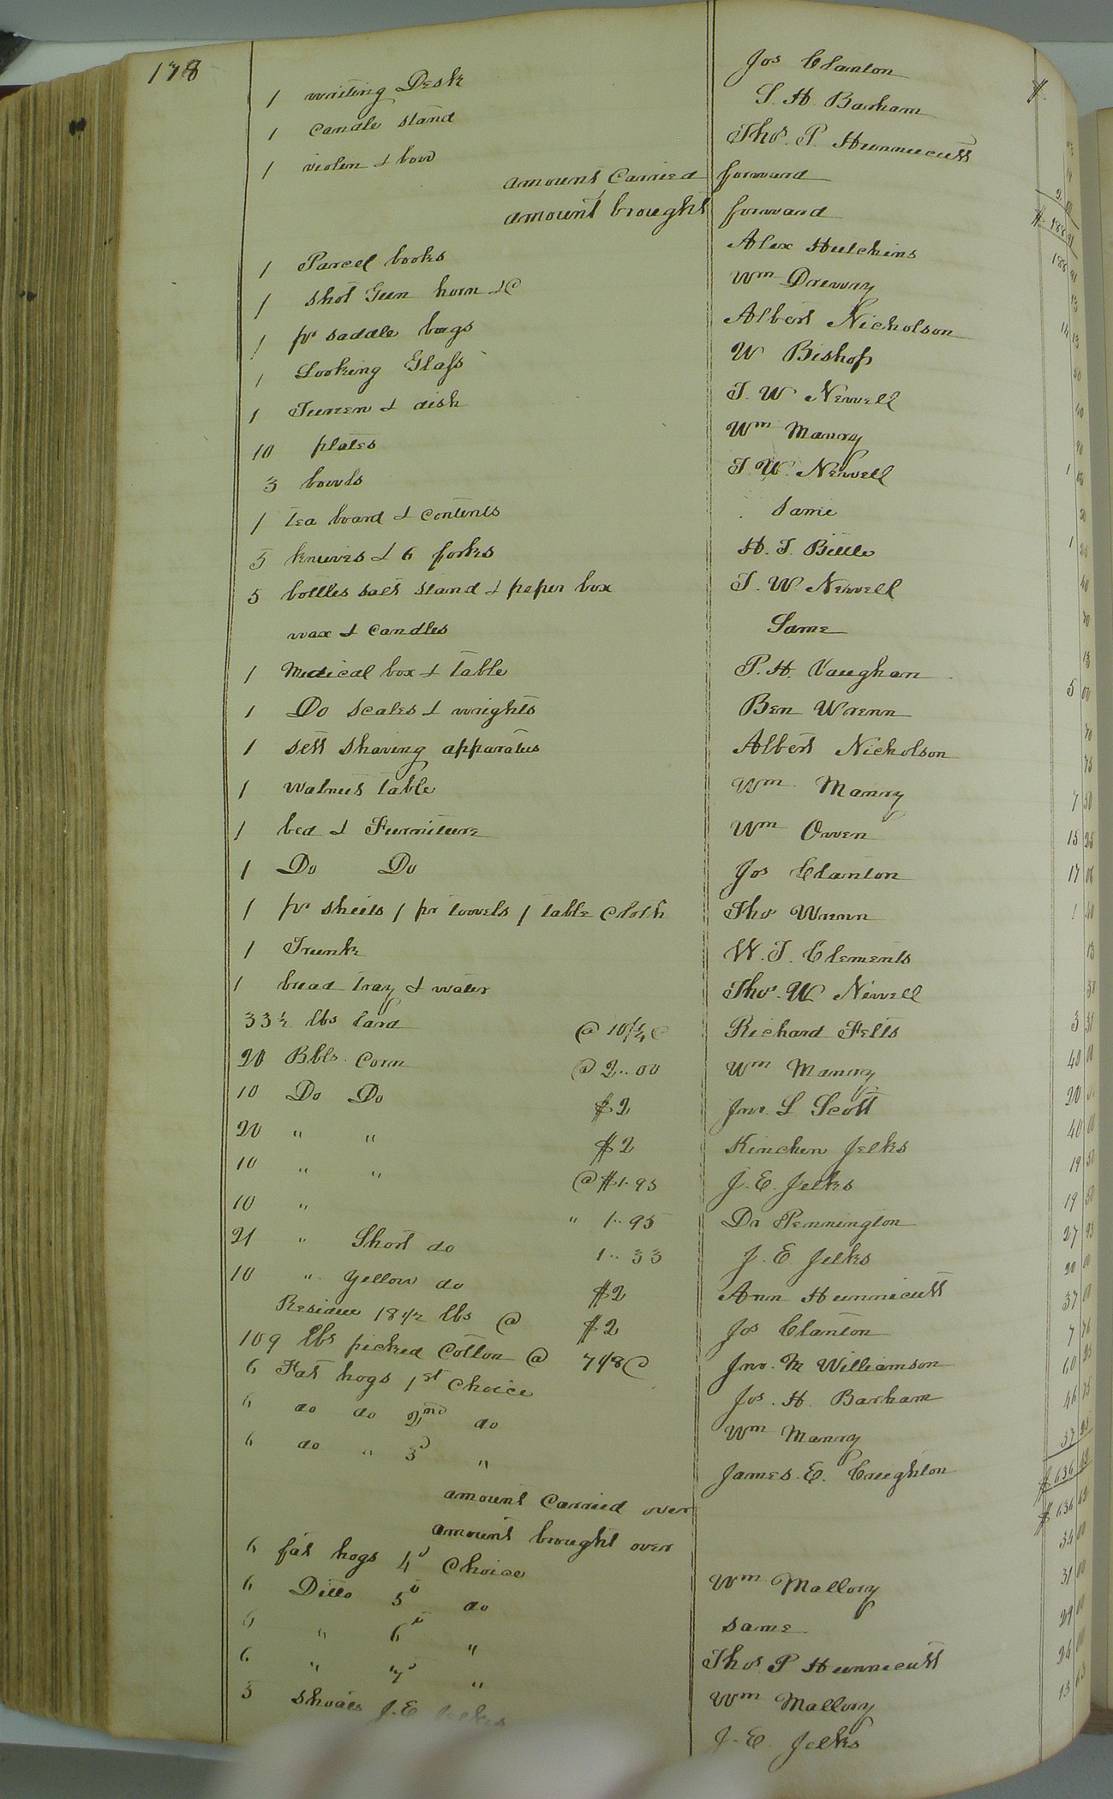 178 $
1 writing Desk Jos Clanton
1 candle stand S. H. Barham
1 violin & bow Thos. P. Hunnicutt
amount Carried forward $ 188
amount brought forward 188
1 Parcel books Alex Hutchins
1 shot Gun horn &C Wm Drewry
1 pr saddle bags Albert Nicholson
1 Looking Glass W Bishop
1 Tureen & dish T. W Newell
10 plates Wm Manry
3 bowls T. W. Newell
1 tea board & contents Same
5 knives & 6 forks H. T. Bittle
5 bottles salt stand & peper box T. W Newell
wax & candles Same
1 Medical box & table P. H. Vaughan
1 Do scales & wrights Ben Wrenn
1 sett shaving apparatus Albert Nicholson
1 walnut table Wm Manry
1 bed & Furniture Wm Owen
1 Do Do Jos Clanton
1 pr sheets 1 pr towels 1 table cloth Thos Wrenn
1 Trunk W. T. Clements
1 bread tray & water Thos. W Newell
33½ lbs lard @ 10¼ C Richard Felts
20 Bbls. Corn @ 2..00 Wm Manry 40
10 Do Do $2 Jno. S Scott 20
20 " " $2 Kinchen Jelks 40
10 " " @ $1.95 J. E. Jelks 19 50
10 " " 1..95 Dr Pennington 19 50
21 " Short do 1..33 J. E Jelks 27 93
10 " yellow do $2 Ann Hunnicutt 20
Residue 18½ lbs @ $2 Jos Clanton 37
109 lbs picked Cotton @ 7 1/8 C Jno. M Williamson 7 76
6 Fat hogs 1st Choice Jos. H. Barham
6 do do 2nd do Wm Manry
6 do " 3d " James. E. Caughton
amount carried over $ 636
amount brought over $ 636
6 fat hogs 4d Choice Wm Mallory 34
6 Ditto 5d do same 31
6 " 6d " Thos P Hunnicutt 29
6 " 7d " Wm Mallory
3 shoats J. E Jelks J. E. Jelks